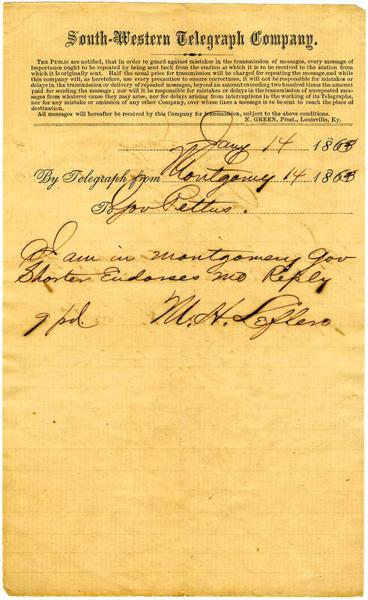 South-Western Telegraph Company.
THE PUBLIC are notified, that in order to guard against mistakes in the transmission of messages, every message of
importance ought to be repeated by being sent back from the station at which it is to be received to the station from
which it is originally sent. Half the usual price for transmission will be charged for repeating the message, and while
this company will, as heretofore, use every precaution to ensure correctness, it will not be responsible for mistakes or
delays in the transmission or delivery of repeated messages, beyond an amount exceeding two hundred times the amount
paid for sending the message; nor will it be responsible for mistakes or delays in the transmission of unrepeated mes-
sages from whatever cause they may arise, nor for delays arising from interruptions in the working of its Telegraphs,
nor for any mistake or omission of any other Company, over whose lines a message is to be sent to reach the place of
destination.
All messages will hereafter be received by this Company for transmission, subject to the above conditions.
N. GREEN, Prest., Louisville, Ky.
Jany 14 1863
By Telegraph from Montgomy 14 1863
To Gov Pettus.
I am in Montgomery Gov
Shorter Endorses me Reply
9 pd. M. H.